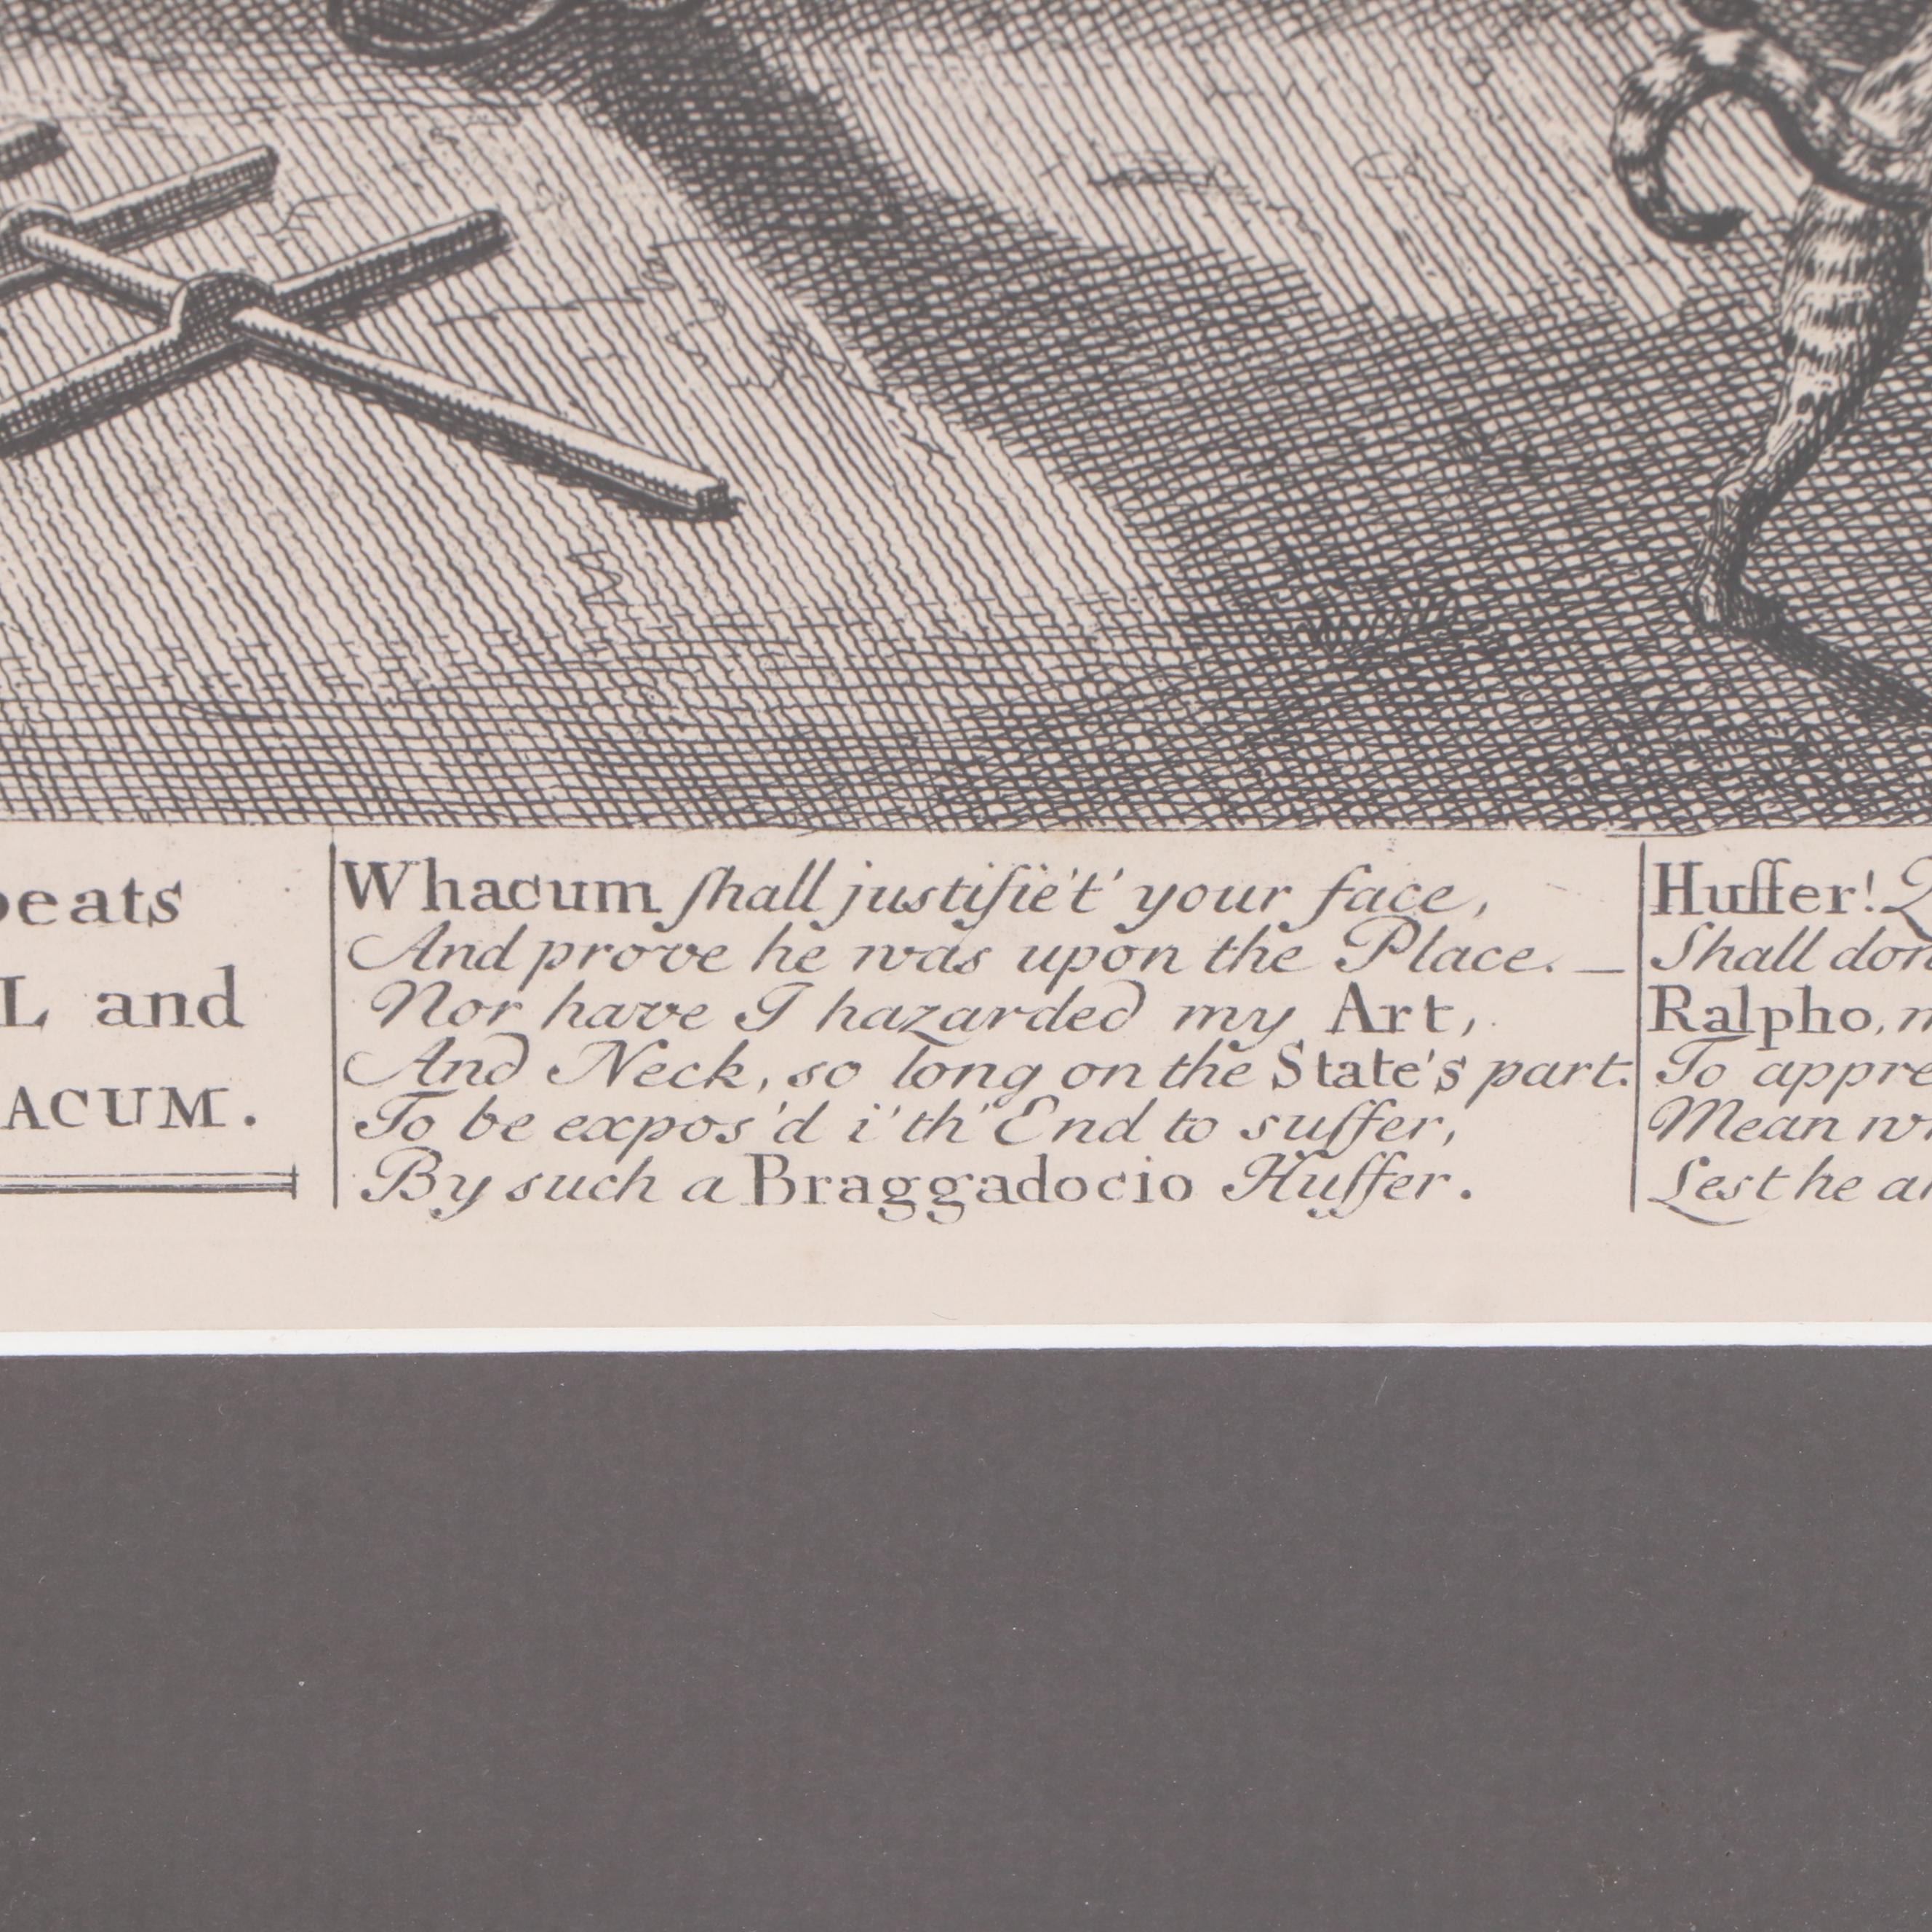 peats
L and
ACUM.
Whacum shall justifie't' your face,
And prove he was upon the Place. —
Nor have I hazarded my Art,
And Neck, so long on the State's part.
To be expos'd i'th' End to suffer,
By such a Braggadocio Huffer.
Huffer! Q
Shall don
Ralpho, m
To appre
Mean w
Lest he a